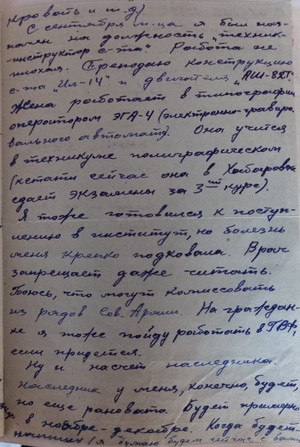 кровать и т.д.)
С сентября м-ца я был наз-
начен на должность "техник-
-инструктор с-та". Работа не
плохая. Преподаю конструкцию
с-та "Ил-14" и двигатель "АШ-82Т".
Жена работает в типографии
оператором ЭГА-4 (электронно-гравиро-
вального автомата). Она учится
в техникуме полиграфическом
(кстати сейчас она в Хабаровске
сдает экзамены за 3ий курс).
Я тоже готовился к поступ-
лению в институт, но болезнь
меня крепко подковала. Врач
запрещает даже читать.
Боюсь, что могут комиссовать
из рядов Сов. Армии. На граждан-
ке я тоже пойду работать в ГВФ,
если придется.
Ну и насчет наследника.
Наследник у меня, конечно, будет,
но еще рановато. Будет примерно
в ноябре-декабре. Когда будет
я думаю сейчас с вами